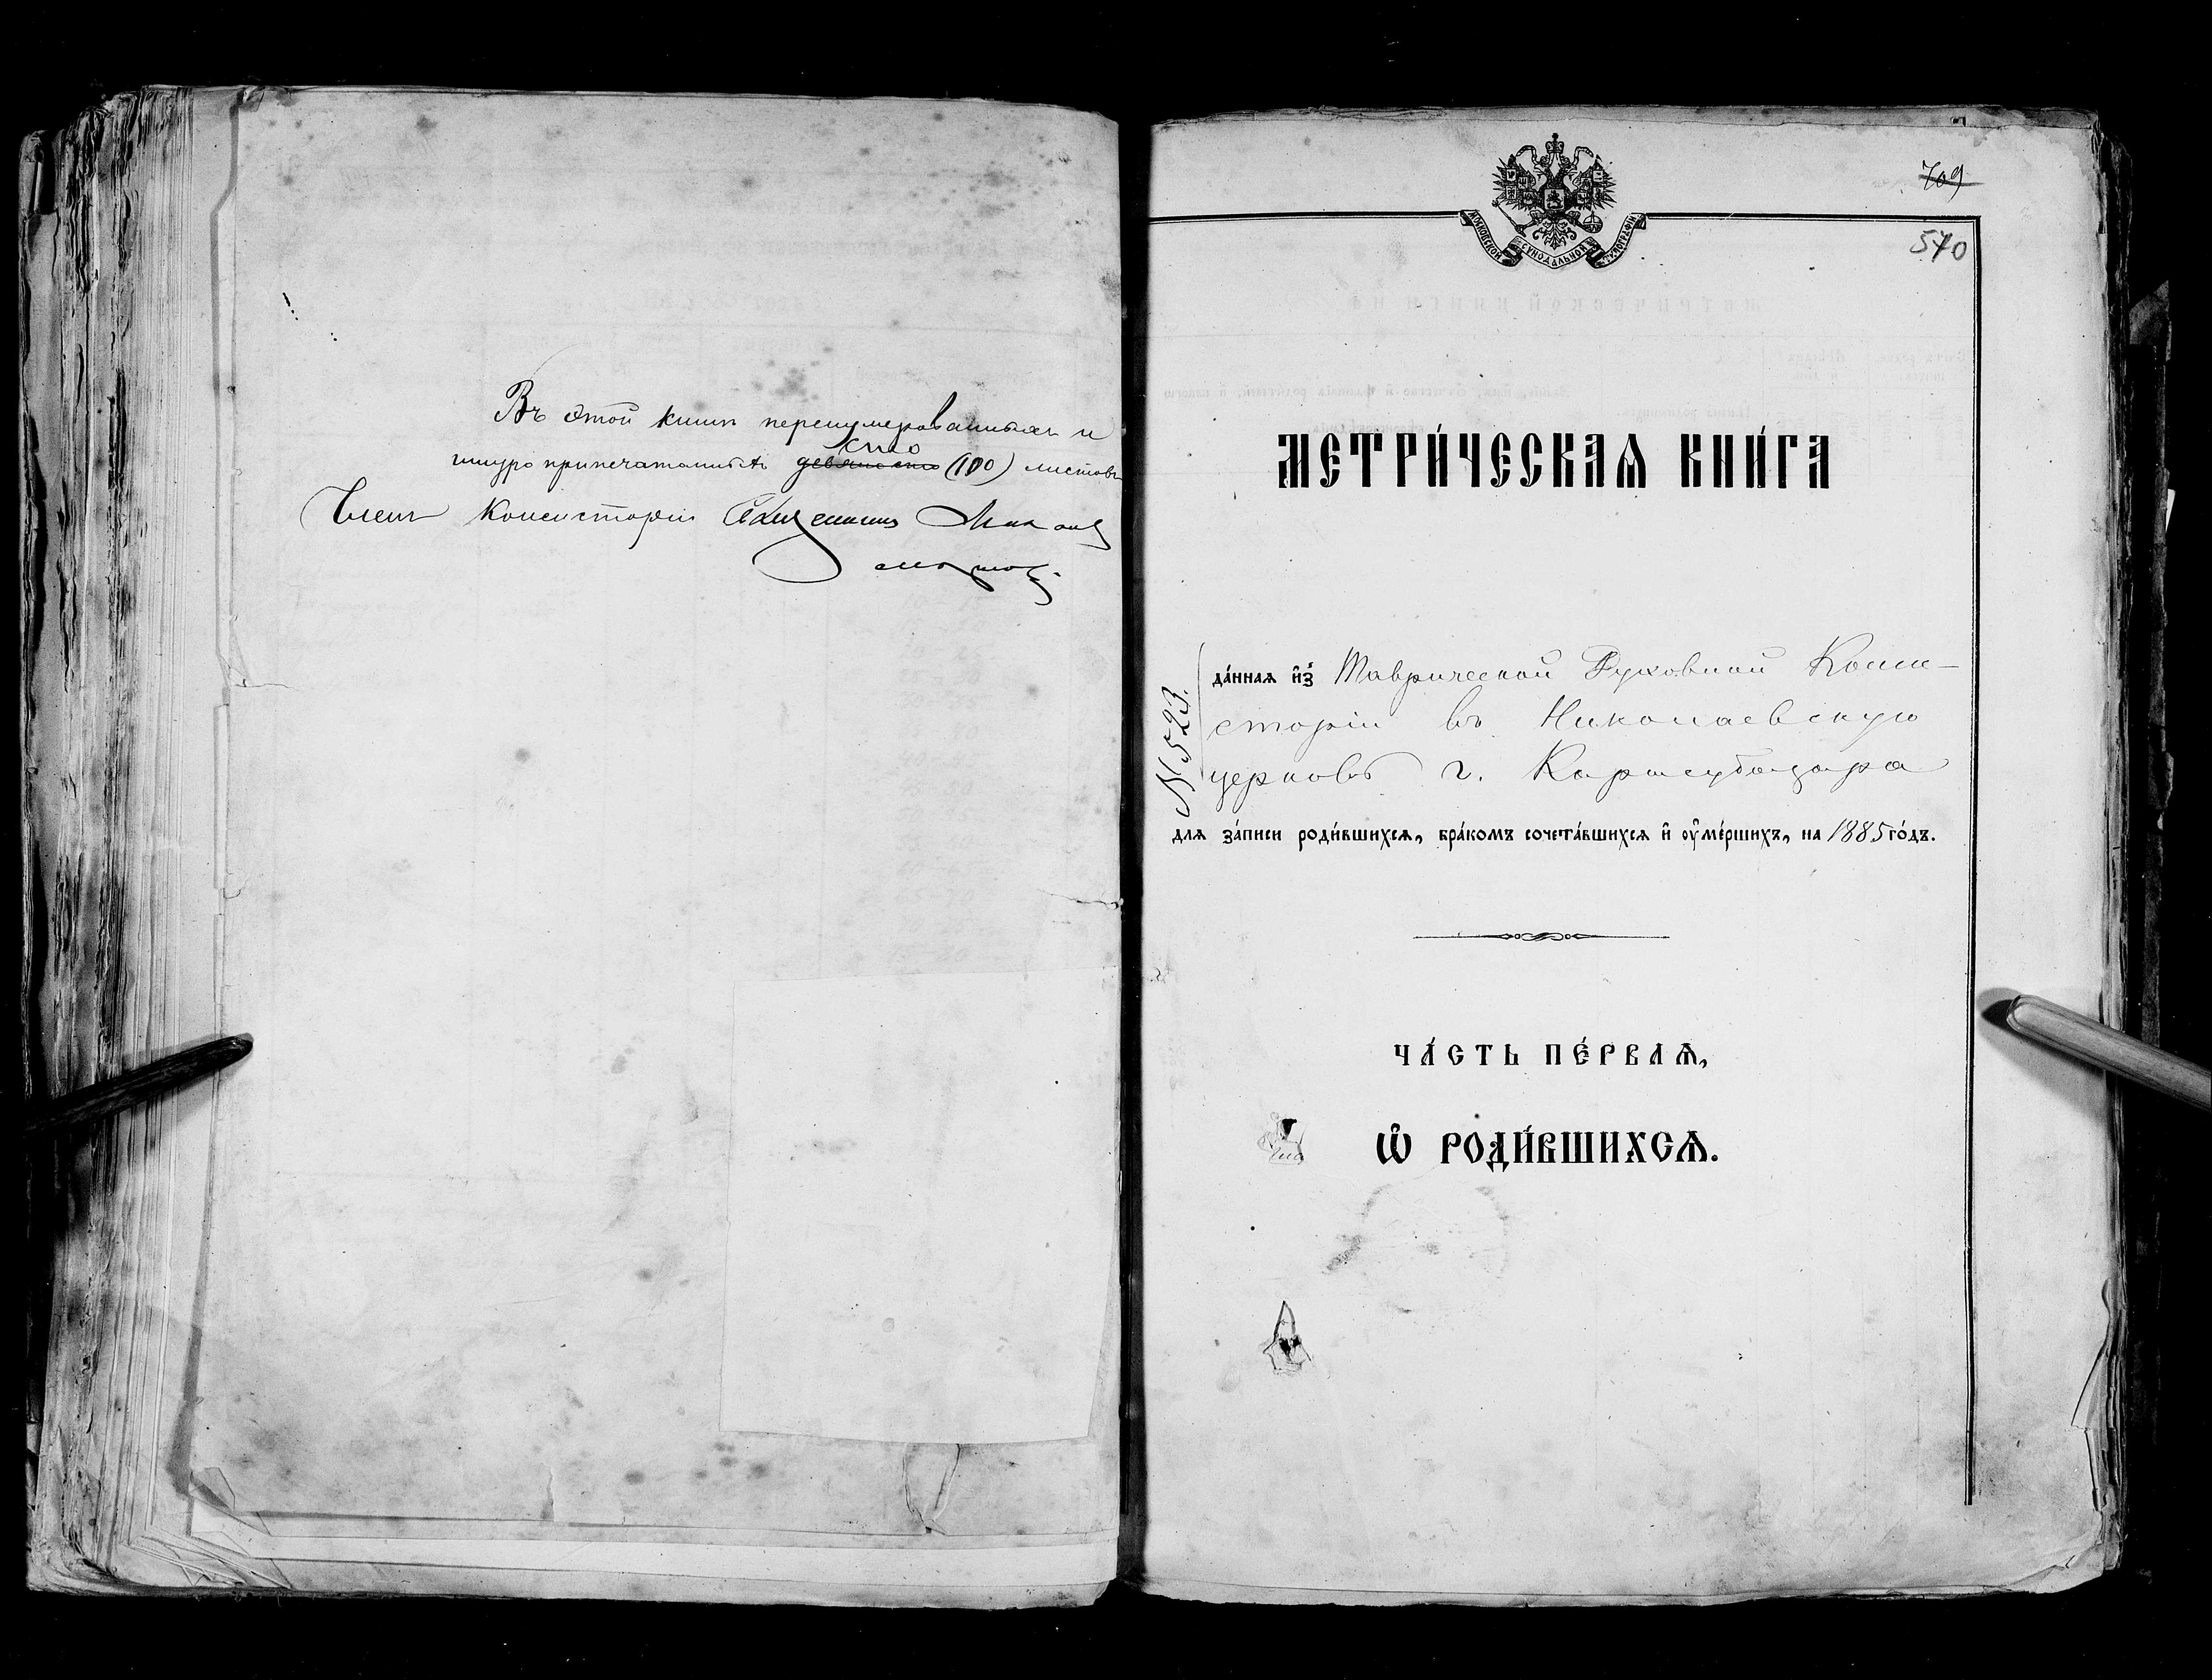 Въ этой книги перенумерованныхъ и
сто
шнуро припечатанныхъ девяносто (100) листовъ
Членъ Консисторіи Священникъ
709
МОСКОВСКОЙ СѴНОДАЛЬНОЙ ТИПОГРАФІИ
570
МЕТРИ́ЧЕСКАѦ КНИ́ГА
N 523.
да́ннаѧ и҆з̾ Таврической Духовной Конси-
сторіи въ Николаевскую
церковь г. Карасубазара
для за́писи роди́вшихсѧ, бра́комъ сочета́вшихсѧ и҆ оу҆ме́ршихъ, на 1885 го́дъ.
ЧА́СТЬ ПЕ́РВАѦ,
Ѡ҆ РОДИ́ВШИХСѦ.